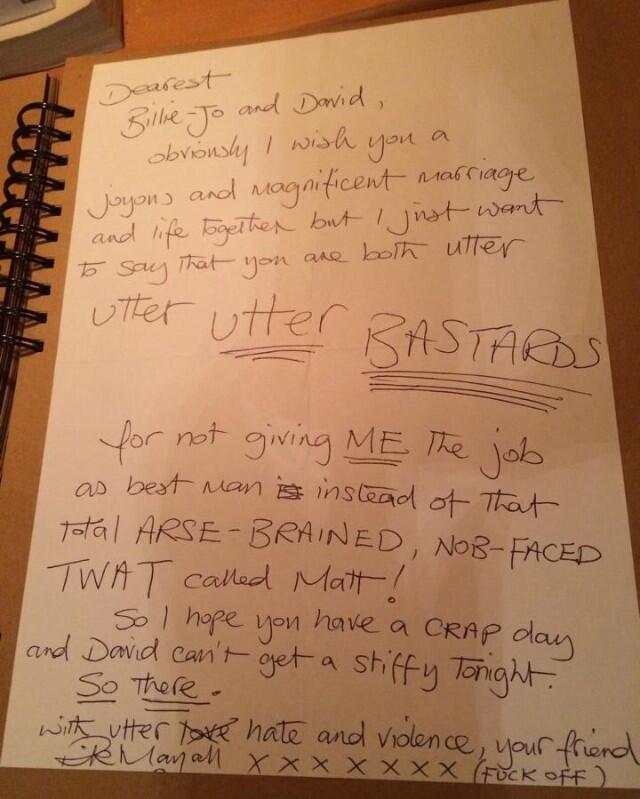 Dearest
Billie-Jo and David,
obviously I wish you a
joyous and magnificent marriage
and life together but I just want
to say that you are both utter
utter utter BASTARDS
for not giving ME the job
as best man is instead of that
total ARSE-BRAINED, NOB-FACED
TWAT called Matt!
So I hope you have a CRAP day
and David can't get a stiffy tonight.
So there.
with utter love hate and violence, your friend
Rik Mayall x x x x x x x (FUCK OFF)